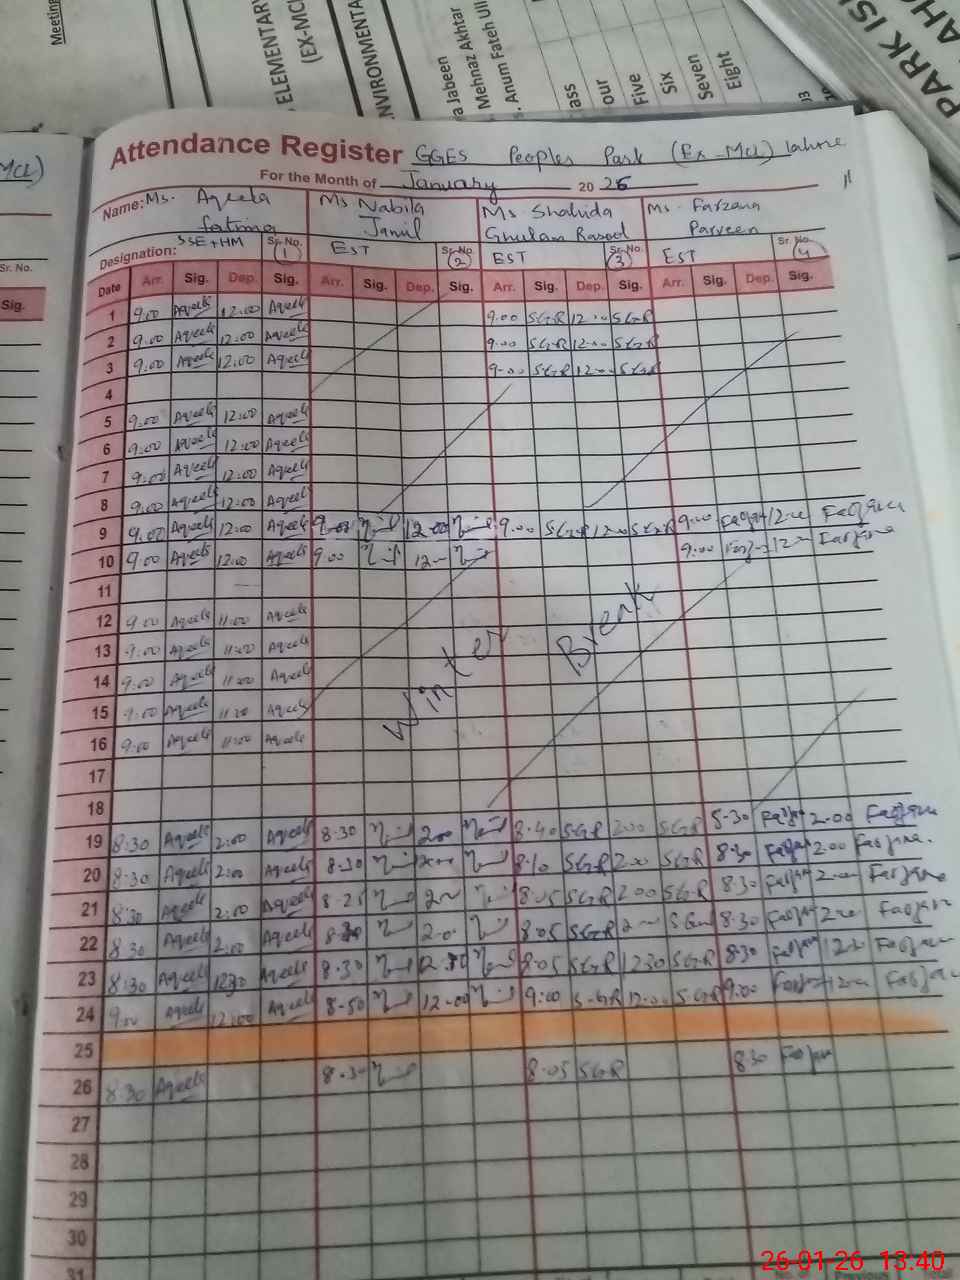 Meeting
ELEMENTARY
(EX-MCL
NVIRONMENTA
a Jabeen
Mehnaz Akhtar
s. Anum Fateh Ull
ass
our
Five
Six
Seven
Eight
PARK
MCL)
Sr. No.
Sig.
Attendance Register GGES Peoples Park (Ex-MCL) lahore
For the Month of January 2026
Name: Ms. Aqeela fatima Ms Nabila Jamil Ms Shahida Ghulam Rasool Ms. Farzana Parveen
Designation: SSE+HM Sr. No. 1 EST Sr. No. 2 EST Sr. No. 3 EST Sr. No. 4
Date Arr. Sig. Dep. Sig. Arr. Sig. Dep. Sig. Arr. Sig. Dep. Sig. Arr. Sig. Dep. Sig.
1 9.00 Aqeela 12.00 Aqeela 9.00 SGR 12.00 SGR
2 9.00 Aqeela 12.00 Aqeela 9.00 SGR 12.00 SGR
3 9.00 Aqeela 12.00 Aqeela 9.00 SGR 12.00 SGR
4
5 9.00 Aqeela 12.00 Aqeela
6 9.00 Aqeela 12.00 Aqeela
7 9.00 Aqeela 12.00 Aqeela
8 9.00 Aqeela 12.00 Aqeela
9 9.00 Aqeela 12.00 Aqeela 9.00 12.00 9.00 SGR 12.00 SGR 9.00 Farzana 12.00 Farzana
10 9.00 Aqeela 12.00 Aqeela 9.00 12.00 9.00 Farzana 12.00 Farzana
11
12 9.00 Aqeela 11.00 Aqeela
13 9.00 Aqeela 11.00 Aqeela
14 9.00 Aqeela 11.00 Aqeela
15 9.00 Aqeela 11.00 Aqeela
16 9.00 Aqeela 11.00 Aqeela
Winter Break
17
18
19 8.30 Aqeela 2.00 Aqeela 8.30 2.00 8.40 SGR 2.00 SGR 8.30 Farzana 2.00 Farzana
20 8.30 Aqeela 2.00 Aqeela 8.30 2.00 8.10 SGR 2.00 SGR 8.30 Farzana 2.00 Farzana
21 8.30 Aqeela 2.00 Aqeela 8.25 2.00 8.05 SGR 2.00 SGR 8.30 Farzana 2.00 Farzana
22 8.30 Aqeela 2.00 Aqeela 2.00 8.05 SGR 2.00 SGR 8.30 Farzana 2.00 Farzana
23 8.30 Aqeela 12.30 Aqeela 8.30 12.30 8.05 SGR 12.30 SGR 8.30 Farzana 12.30 Farzana
24 9.00 Aqeela 12.00 Aqeela 8.50 12.00 9.00 SGR 12.00 SGR 9.00 Farzana 12.00 Farzana
25
26 8.30 Aqeela 8.30 8.05 SGR 8.30 Farzana
27
28
29
30
31
26-01-26 13:40